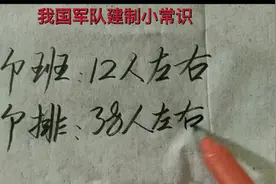 我国军队建制小常识
个班:12人左右
个排:38人左右